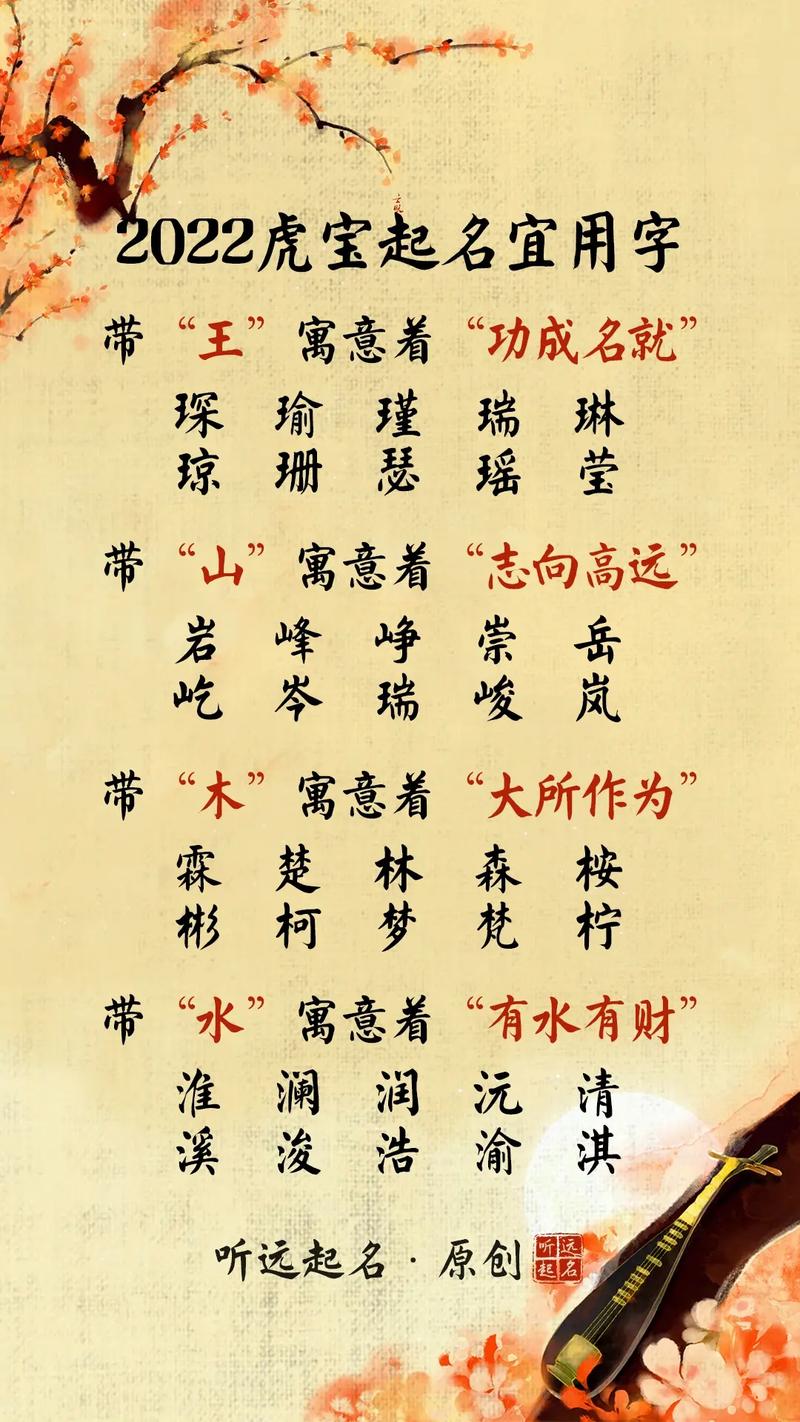 2022虎宝起名宜用字
带 “王” 寓意着 “功成名就”
琛 瑜 瑾 瑞 琳
琼 珊 瑟 瑶 莹
带 “山” 寓意着 “志向高远”
岩 峰 峥 崇 岳
屹 岑 瑞 峻 岚
带 “木” 寓意着 “大所作为”
霖 楚 林 森 桉
彬 柯 梦 梵 柠
带 “水” 寓意着 “有水有财”
淮 澜 润 沅 清
溪 浚 浩 渝 淇
听远起名·原创
听远
起名